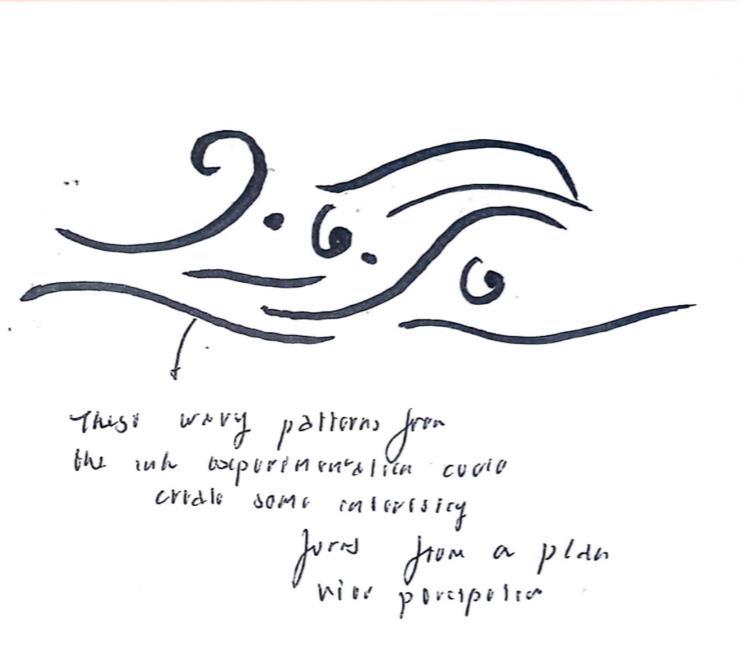 These wavy patterns from
the ink experimentation could
create some interesting
forms from a plan
view perspective